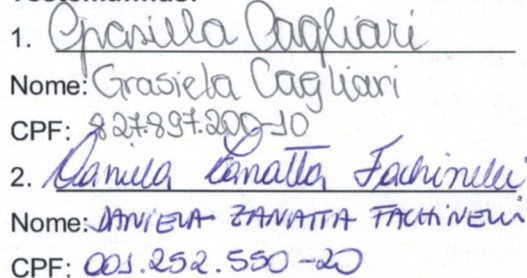 Testemunhas:
1. Grasiella Cagliari
Nome: Grasiela Cagliari
CPF: 827.897.200-10
2. Daniela Zanatta Fachinelli
Nome: DANIELA ZANATTA FACHINELLI
CPF: 001.252.550-20